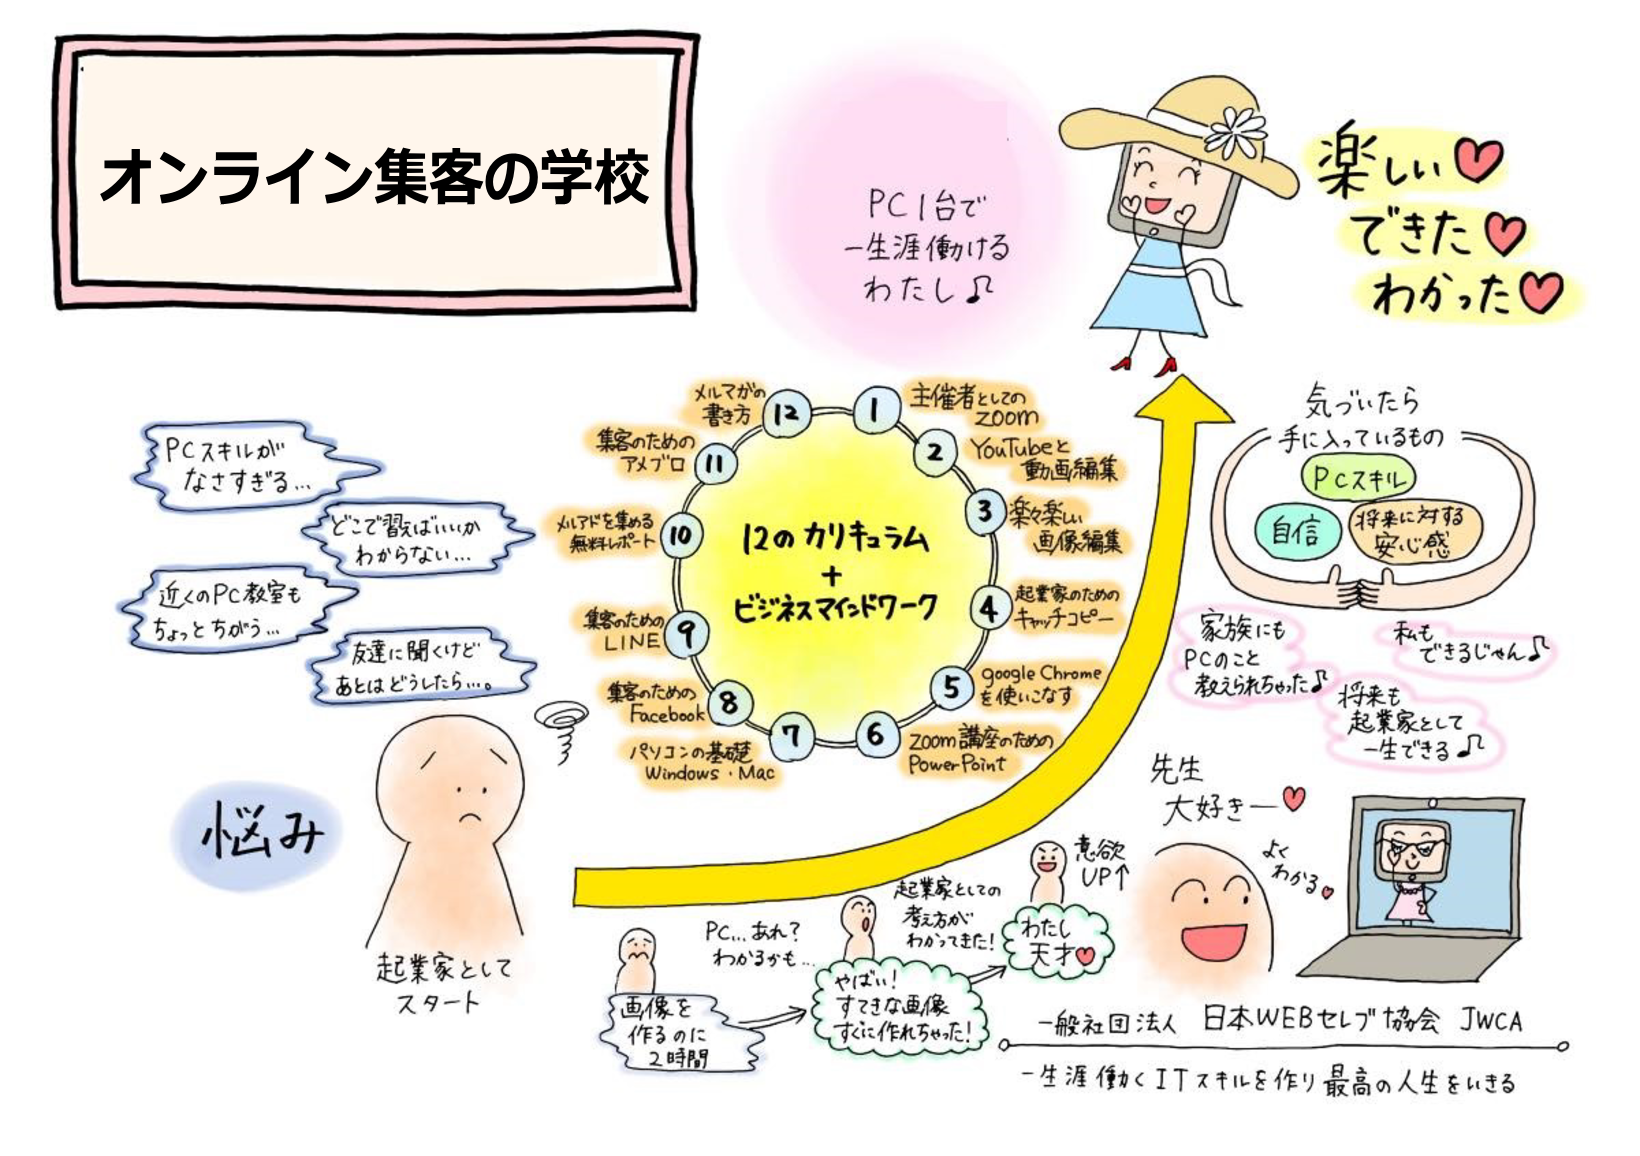 オンライン集客の学校
PC1台で
一生涯働ける
わたし♫
楽しい♥
できた♥
わかった♥
PCスキルが
なさすぎる…
どこで習えばいいか
わからない…
近くのPC教室も
ちょっとちがう…
友達に聞くけど
あとはどうしたら…。
悩み
起業家として
スタート
12のカリキュラム
+
ビジネスマインドワーク
1
主催者としての
ZOOM
2
YouTubeと
動画編集
3
楽々楽しい
画像編集
4
起業家のための
キャッチコピー
5
google Chrome
を使いこなす
6
Zoom講座のための
PowerPoint
7
パソコンの基礎
Windows・Mac
8
集客のための
Facebook
9
集客のための
LINE
10
メルアドを集める
無料レポート
11
集客のための
アメブロ
12
メルマガの
書き方
気づいたら
手に入っているもの
PCスキル
自信
将来に対する
安心感
家族にも
PCのこと
教えられちゃった♪
私も
できるじゃん♫
将来も
起業家として
一生できる♫
先生
大好きー♥
よく
わかる♥
画像を
作るのに
2時間
PC…あれ?
わかるかも…
やばい!
すてきな画像
すぐに作れちゃった!
起業家としての
考え方が
わかってきた!
わたし
天才♥
意欲
UP↑
一般社団法人 日本WEBセレブ協会 JWCA
一生涯働くITスキルを作り最高の人生をいきる